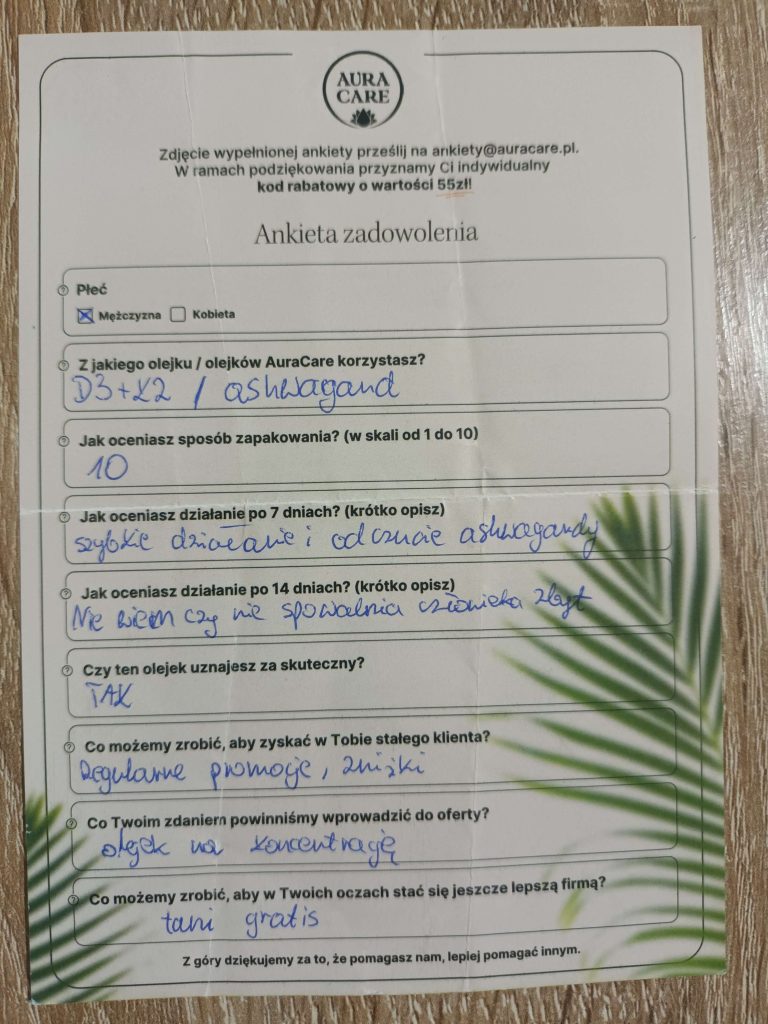 AURA
CARE
Zdjęcie wypełnionej ankiety prześlij na ankiety@auracare.pl.
W ramach podziękowania przyznamy Ci indywidualny
kod rabatowy o wartości 55zł!
Ankieta zadowolenia
Płeć
Mężczyzna Kobieta
Z jakiego olejku / olejków AuraCare korzystasz?
D3+K2 / ashwagand
Jak oceniasz sposób zapakowania? (w skali od 1 do 10)
10
Jak oceniasz działanie po 7 dniach? (krótko opisz)
szybkie działanie i odczucie ashwagandy
Jak oceniasz działanie po 14 dniach? (krótko opisz)
Nie wiem czy nie spowalnia człowieka zbyt
Czy ten olejek uznajesz za skuteczny?
TAK
Co możemy zrobić, aby zyskać w Tobie stałego klienta?
Regularne promocje, zniżki
Co Twoim zdaniem powinniśmy wprowadzić do oferty?
olejek na koncentrację
Co możemy zrobić, aby w Twoich oczach stać się jeszcze lepszą firmą?
tani gratis
Z góry dziękujemy za to, że pomagasz nam, lepiej pomagać innym.